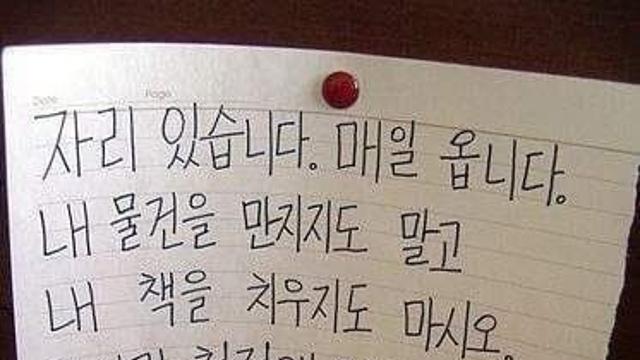 Date Page
자리 있습니다. 매일 옵니다.
내 물건을 만지지도 말고
내 책을 치우지도 마시오.